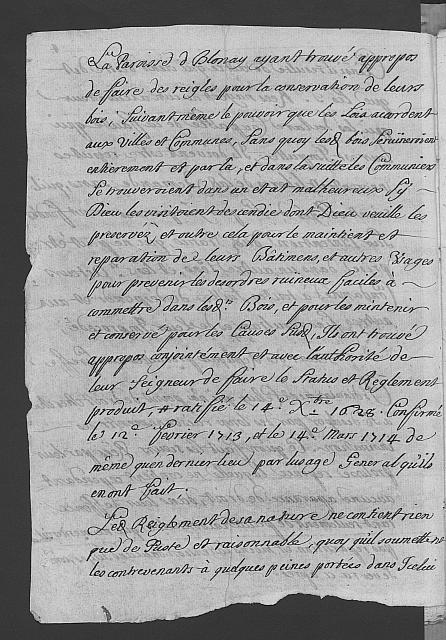 La Paroisse d Blonay ayant trouvé appropos
de faire des reigles pour la conservation de leurs
bois, Suivant même le pouvoir que les Loix acordent
aux Villes et Communes, Sans quoy lesd bois Seruineroient
entièrement et par la, et dans la suitte les Communiers
Se trouveroient dans un etat malheureux Sy
Dieu les visitoient des cendie dont Dieu veuille les
preserver, et outre cela pour le maintient et
reparation de leurs Bâtimens, et autres Usages
pour prevenir les desordres ruineux faciles à
commettre dans lesd.ts Bois, et pour les mintenir
et conservé pour les Causes Susd, Ils ont trouvé
appropos conjointement et avec l'authorité de
leur Seigneur de faire le Status et Règlement
produit, ratifié le 14.e Xbre 1628. Confirmé
le 12.e fevrier 1713, et le 14.e Mars 1714 de
même qu'en dernier lieu par l'usage General qu'ils
en ont fait;
Led Reiglement de sa nature ne contient rien
que de Juste et raisonnable, quoy qu'il soumettent
les contrevenants à quelques peines portées dans Icelui